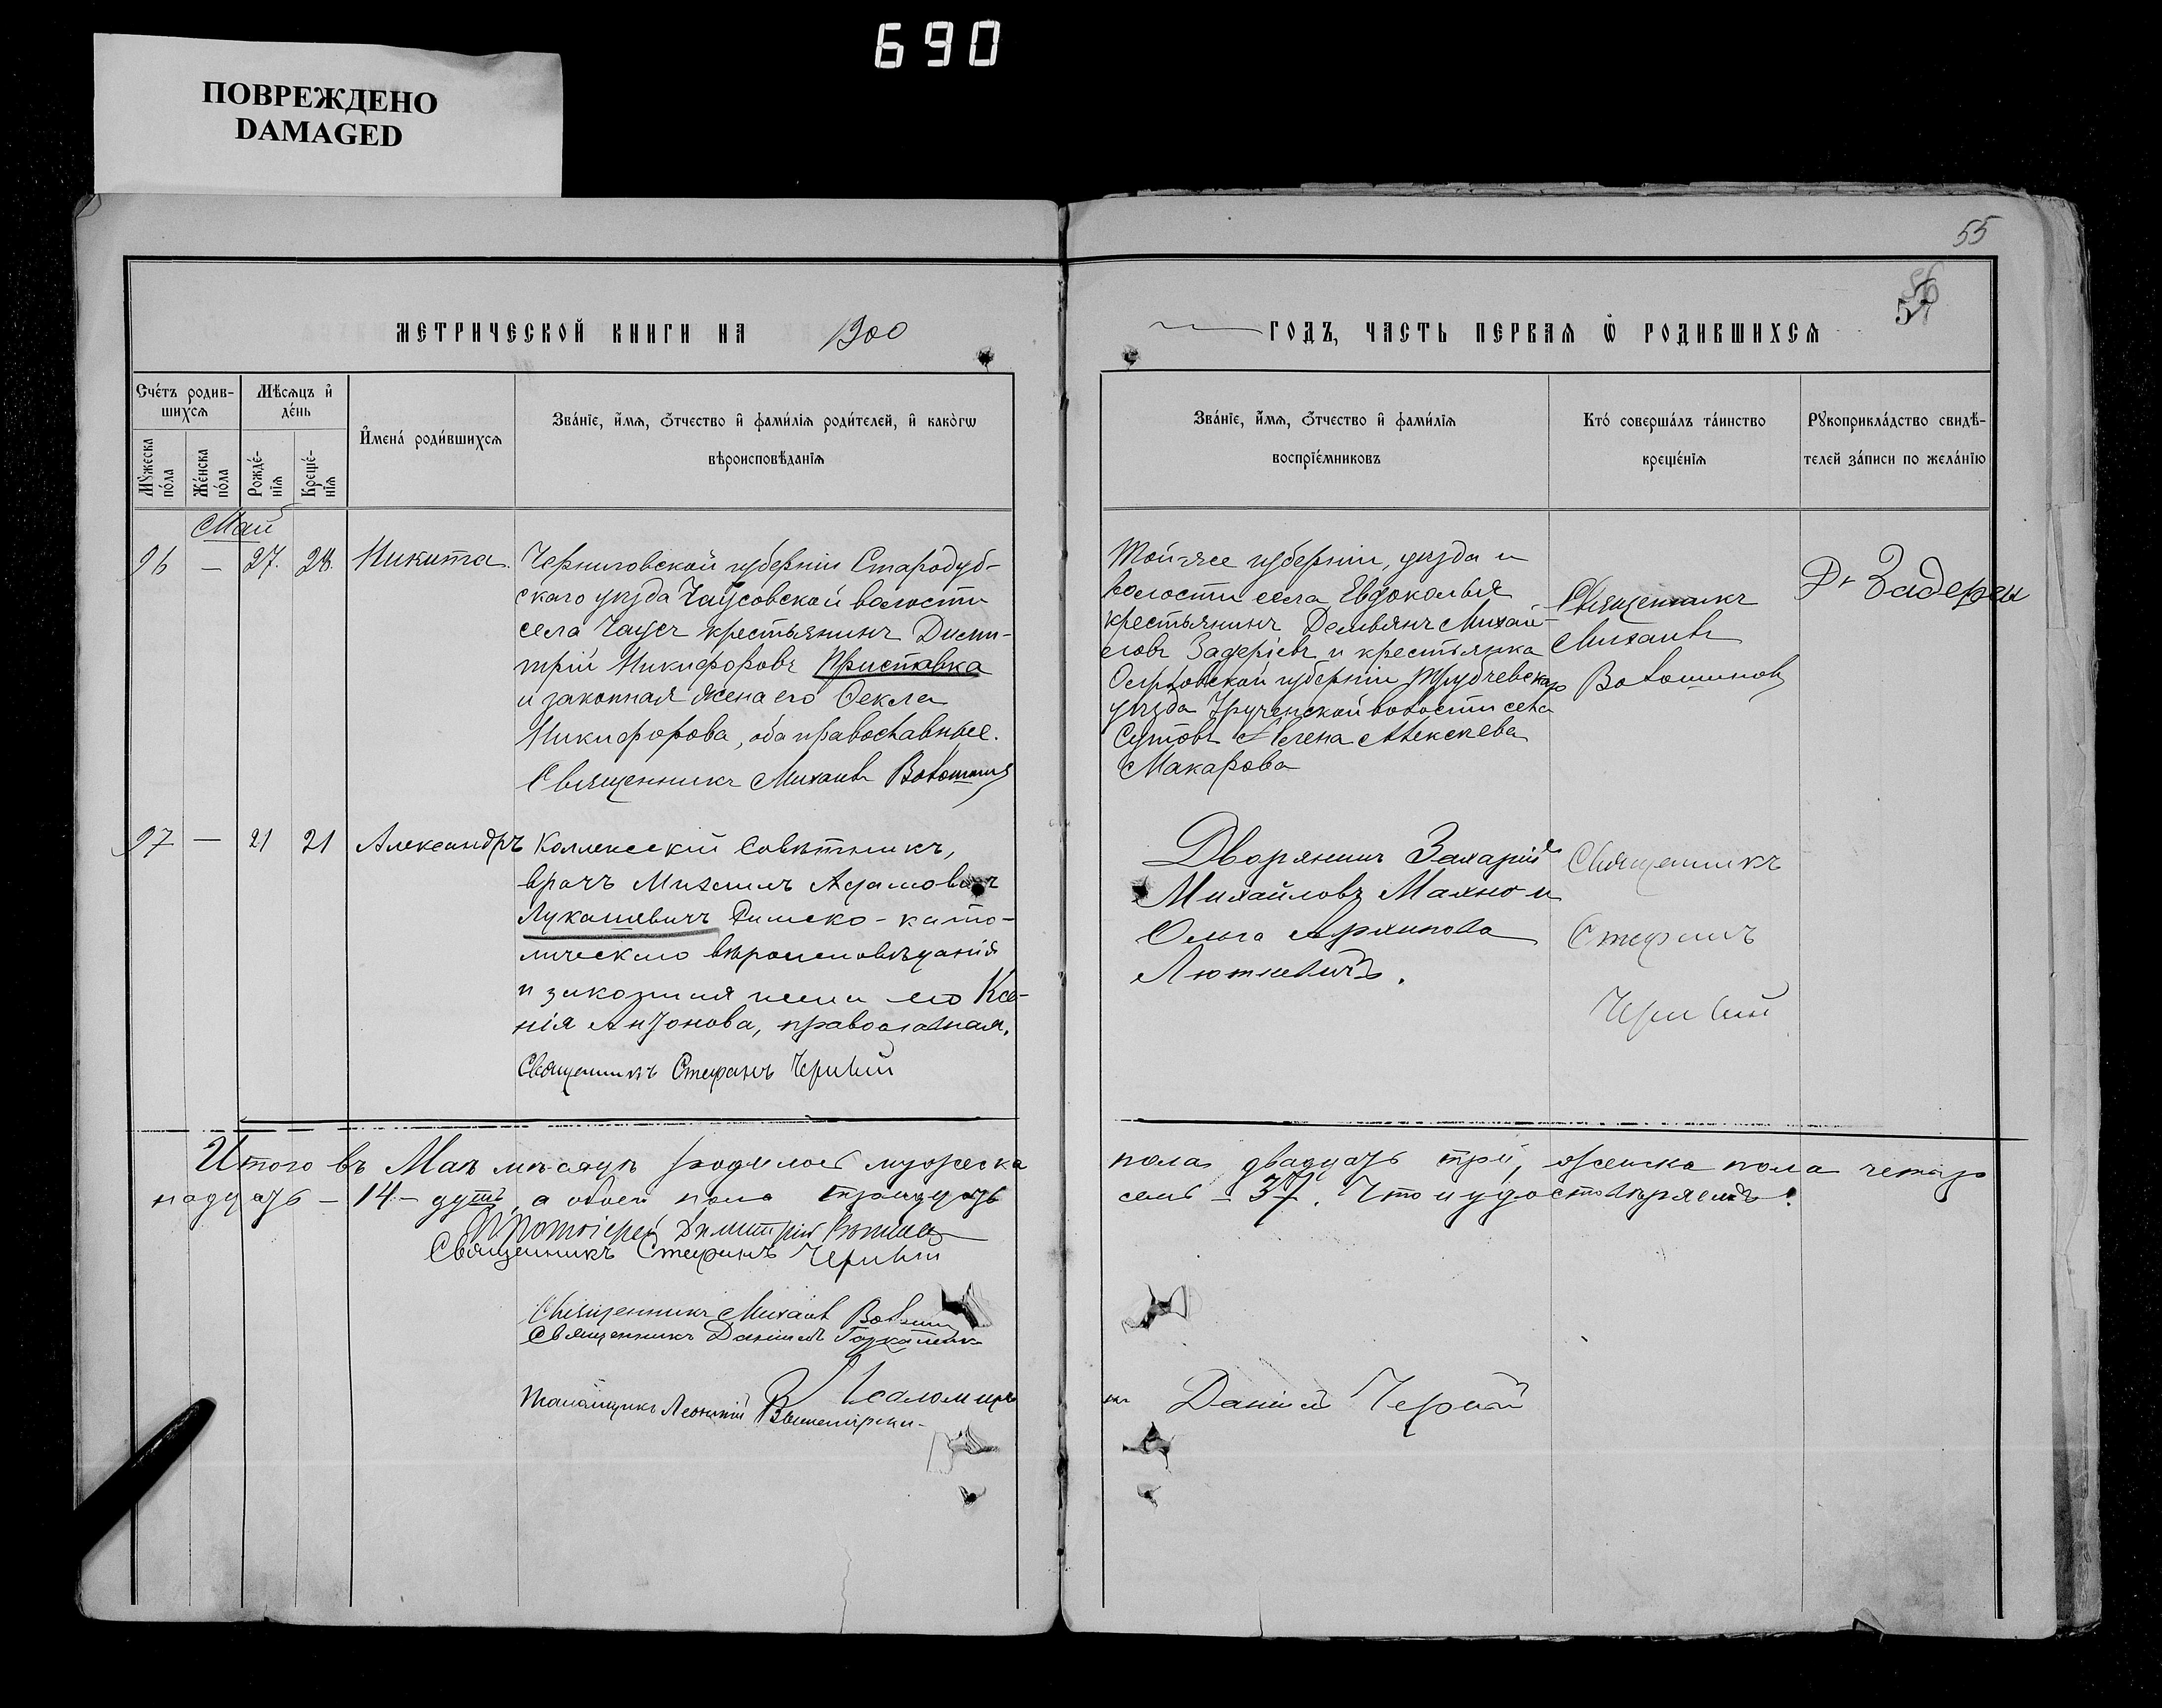 690
ПОВРЕЖДЕНО
DAMAGED
55
56
57
МЕТРИЧЕСКОЙ КНИГИ НА 1900
ГОДЪ, ЧАСТЬ ПЕРВАЯ Ѡ РОДИВШИХСЯ
Счетъ родив-
шихся
Мѣсяцъ и
день
Мужеска
пола
Женска
пола
Рожде-
нія
Креще-
нія
Имена родившихся
Званіе, имя, отчество и фамилія родителей, и какогѡ
вѣроисповѣданія
Званіе, имя, отчество и фамилія
воспріемниковъ
Кто совершалъ таинство
крещенія
Рукоприкладство свидѣ-
телей записи по желанію
Май
26 — 27. 28. Никита.
Черниговской губерніи Стародуб-
скаго уѣзда Чаусовской волости
села Чаусъ крестьянинъ Дими-
трій Никифоровъ Приставка
и законная жена его Ѳекла
Никифорова, оба православные.
Священникъ Михаилъ
Той-же губерніи, уѣзда и
волости села Евдоколья
крестьянинъ Демьянъ Михай-
ловъ Задеріевъ и крестьянка
губерніи Трубчевскаго
уѣзда волости села
Елена Алексѣева
Макарова
Священникъ
Михаилъ
Волошинов
27 — 21 21 Александръ
Коллежскій Совѣтникъ,
врачъ Михаилъ Адамовичъ
Лукашевичъ Римско-като-
лическаго вѣроисповѣданія
и законная жена его Ксе-
нія Антонова, православная.
Священникъ Стефанъ
Дворянинъ Захарій
Михайловъ Махно и
Ольга Архипова
Люткевичъ.
Священникъ
Стефанъ
Итого въ Маѣ мѣсяцѣ родилось мужеска
пола двадцать три, женска пола четыр
надцать — 14 — душъ, а обоего пола тридцать
семь — 37. Что и удостовѣряемъ.
Протоіерей Димитрій
Священникъ Стефанъ
Священникъ Михаилъ
Священникъ Даніилъ
Псаломщ
Даніилъ